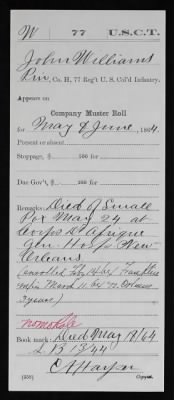 W 77 U.S.C.T.
John Williams
Pri, Co. H, 77 Reg't U. S. Col'd Infantry.
Appears on
Company Muster Roll
for May & June, 1864.
Present or absent
Stopppage, $ 100 for
Due Gov't, $ 100 for
Remarks: Died of Small
Pox May 24 at
Corps D Afrique
Gen. Hosp New
Orleans
(enrolled Feby 14/64 Franklin
3 years)
Book mark: Died May 19/64
L. B 13/44
(358) Copyist.